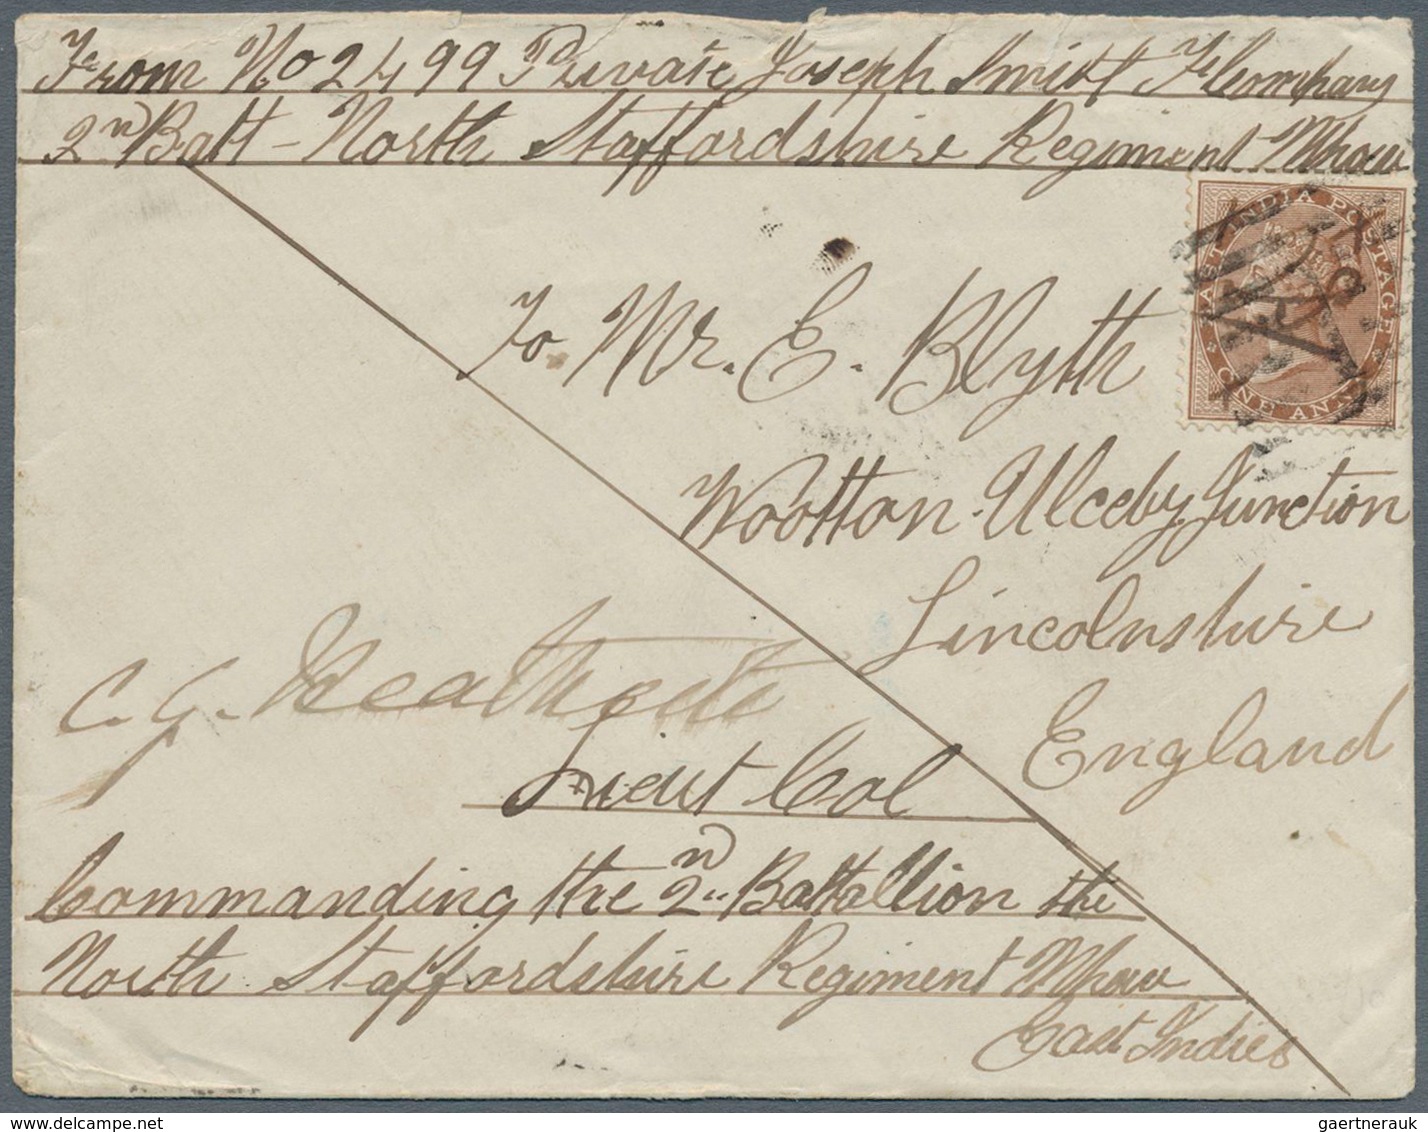 From No 2499 Private Joseph Smith F Company
2nd Batt - North Staffordshire Regiment Mhow
EAST INDIA POSTAGE
ONE ANNA
To Mr. E. Blyth
Wootton Ulceby Junction
Lincolnshire
England
C. G. Heathcote
Lieut Col
Commanding the 2nd Battallion the
North Staffordshire Regiment Mhow
East Indies
www.delcampe.net
gaertnerauk